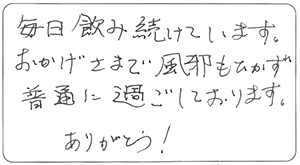 毎日飲み続けています。
おかげさまで風邪もひかず
普通に過ごしております。
ありがとう!